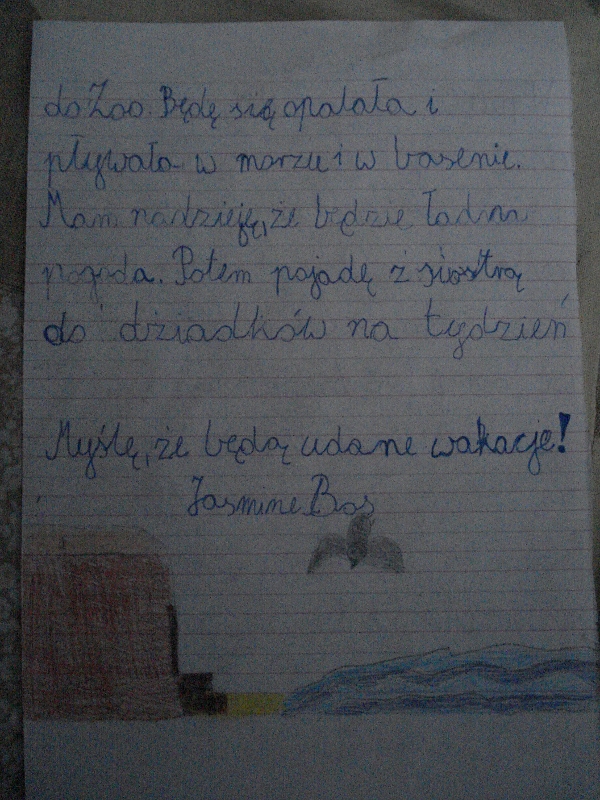 do Zoo. Będę się opalała i
pływała w morzu i w basenie.
Mam nadzieję, że będzie ładna
pogoda. Potem pojadę z siostrą
do dziadków na tydzień
Myślę, że będą udane wakacje!
Jasmine Bos